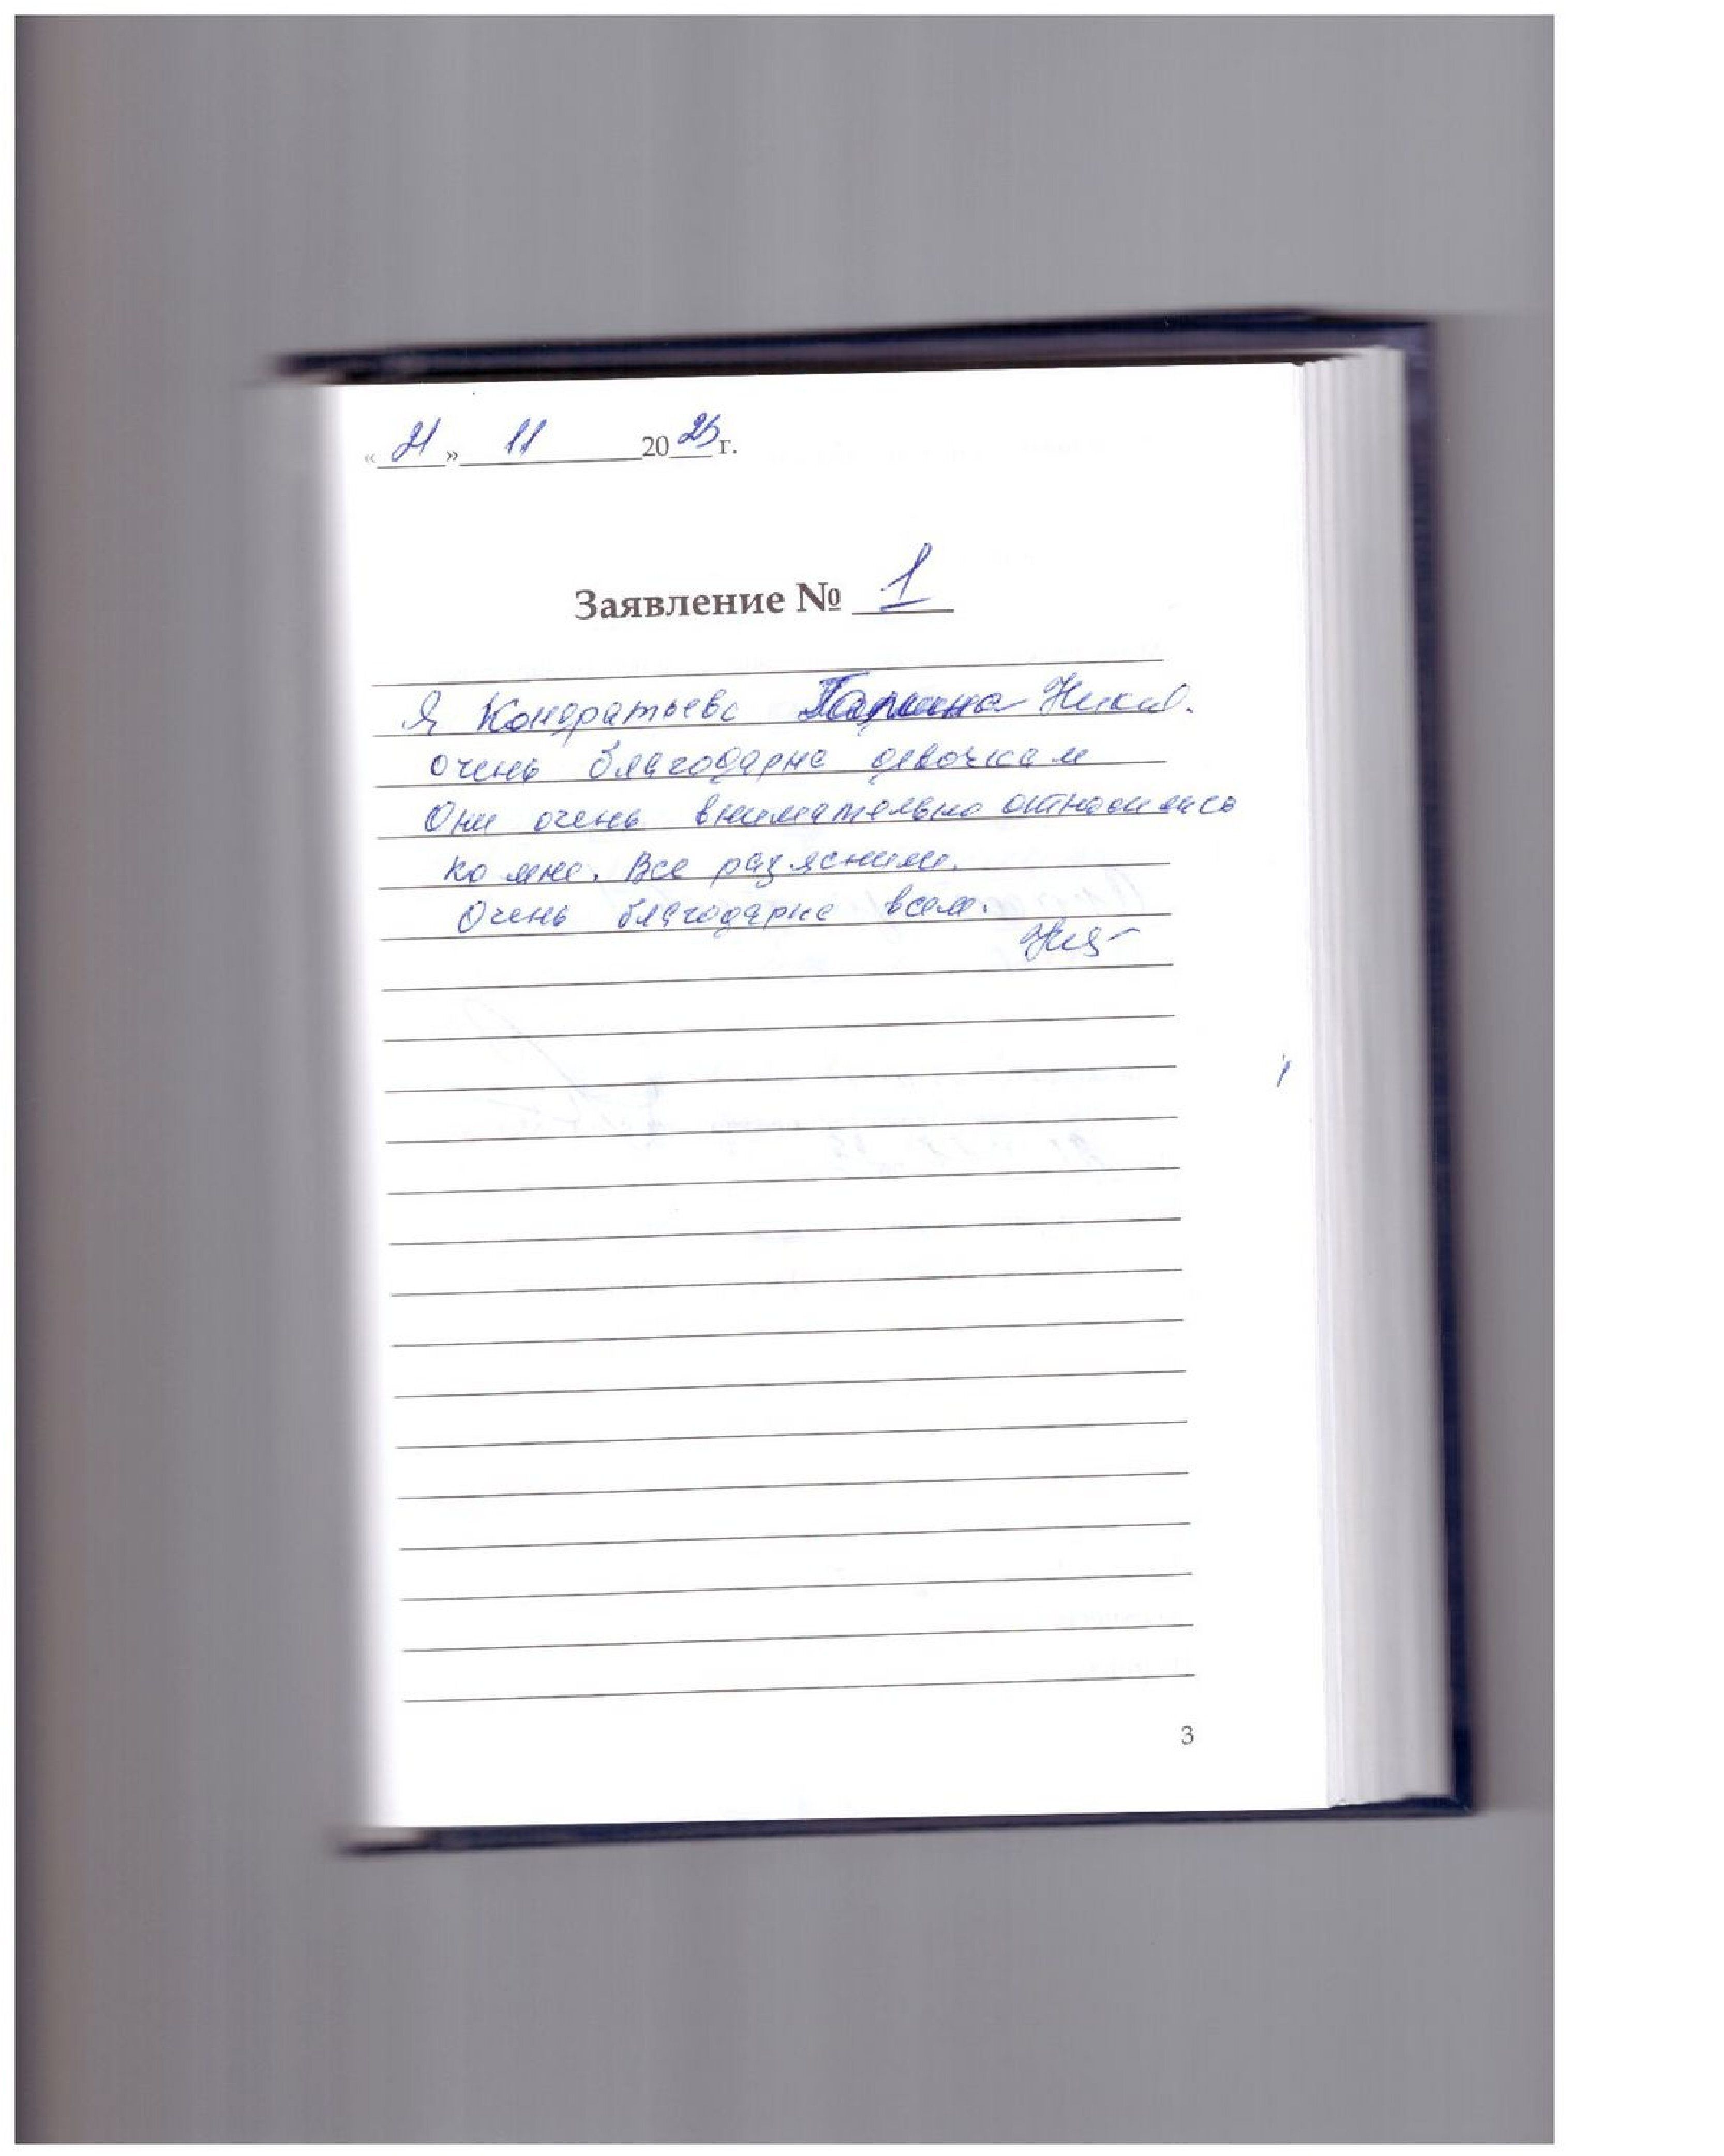 « 21 » 11 2025 г.
Заявление № 1
Я Кондратьева Никол.
очень благодарна девочкам
Они очень внимательно относились
ко мне. Все разяснили.
Очень благодарна всем.
3